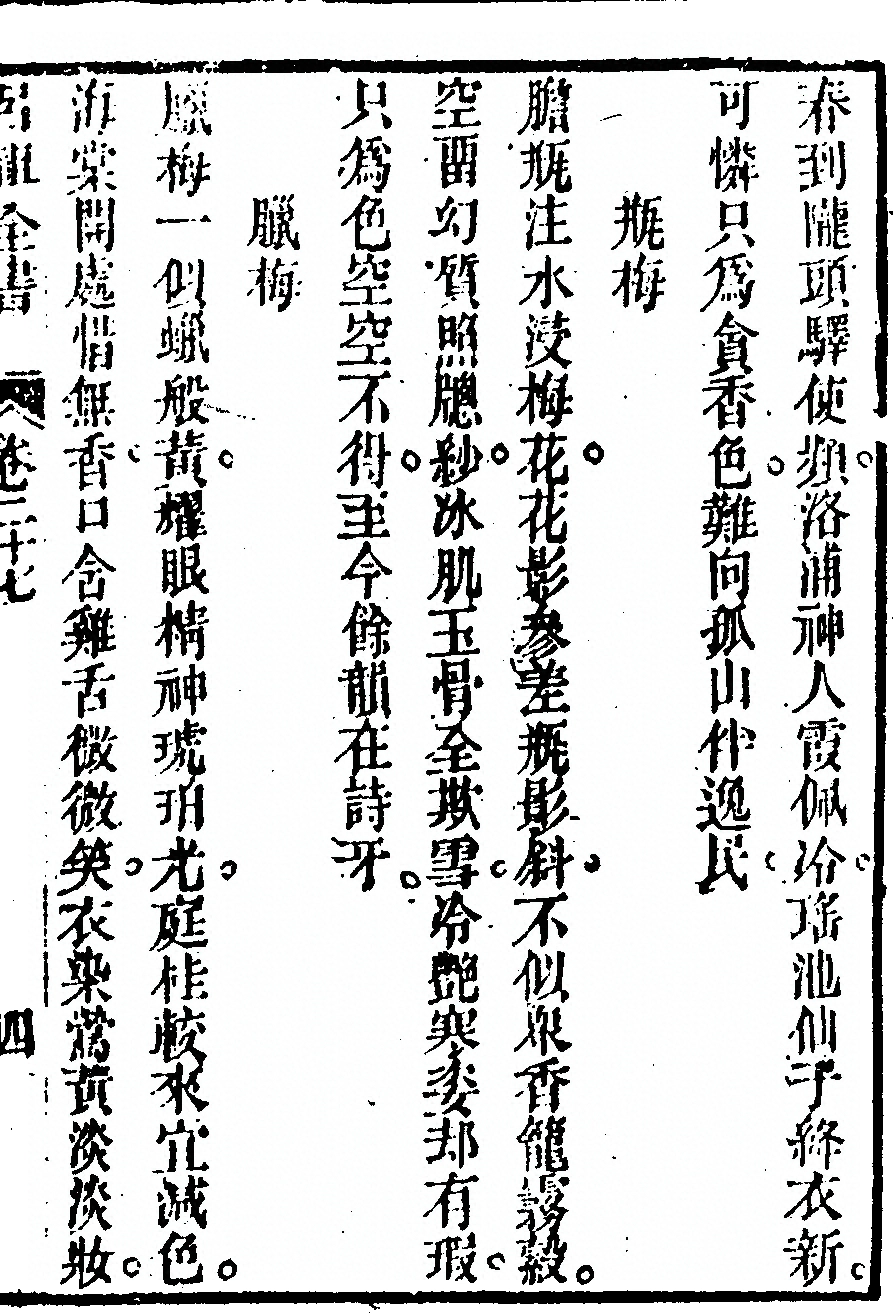 春到隴頭驛使頻洛浦神人霞佩冷瑤池仙子絳衣新
可憐只爲貪香色難向孤山伴逸民
瓶梅
膽瓶注水浸梅花花影參差瓶影斜不似衆香籠霧縠
空留幻質照牕紗冰肌玉骨全欺雪冷艷寒姿却有瑕
只爲色空空不得至今餘韻在詩牙
臘梅
臘梅一似蠟般黃耀眼精神琥珀光庭桂較來宜減色
海棠開處惜無香口含雞舌微微笑衣染鶯黃淡淡妝
全書 卷二十七 四